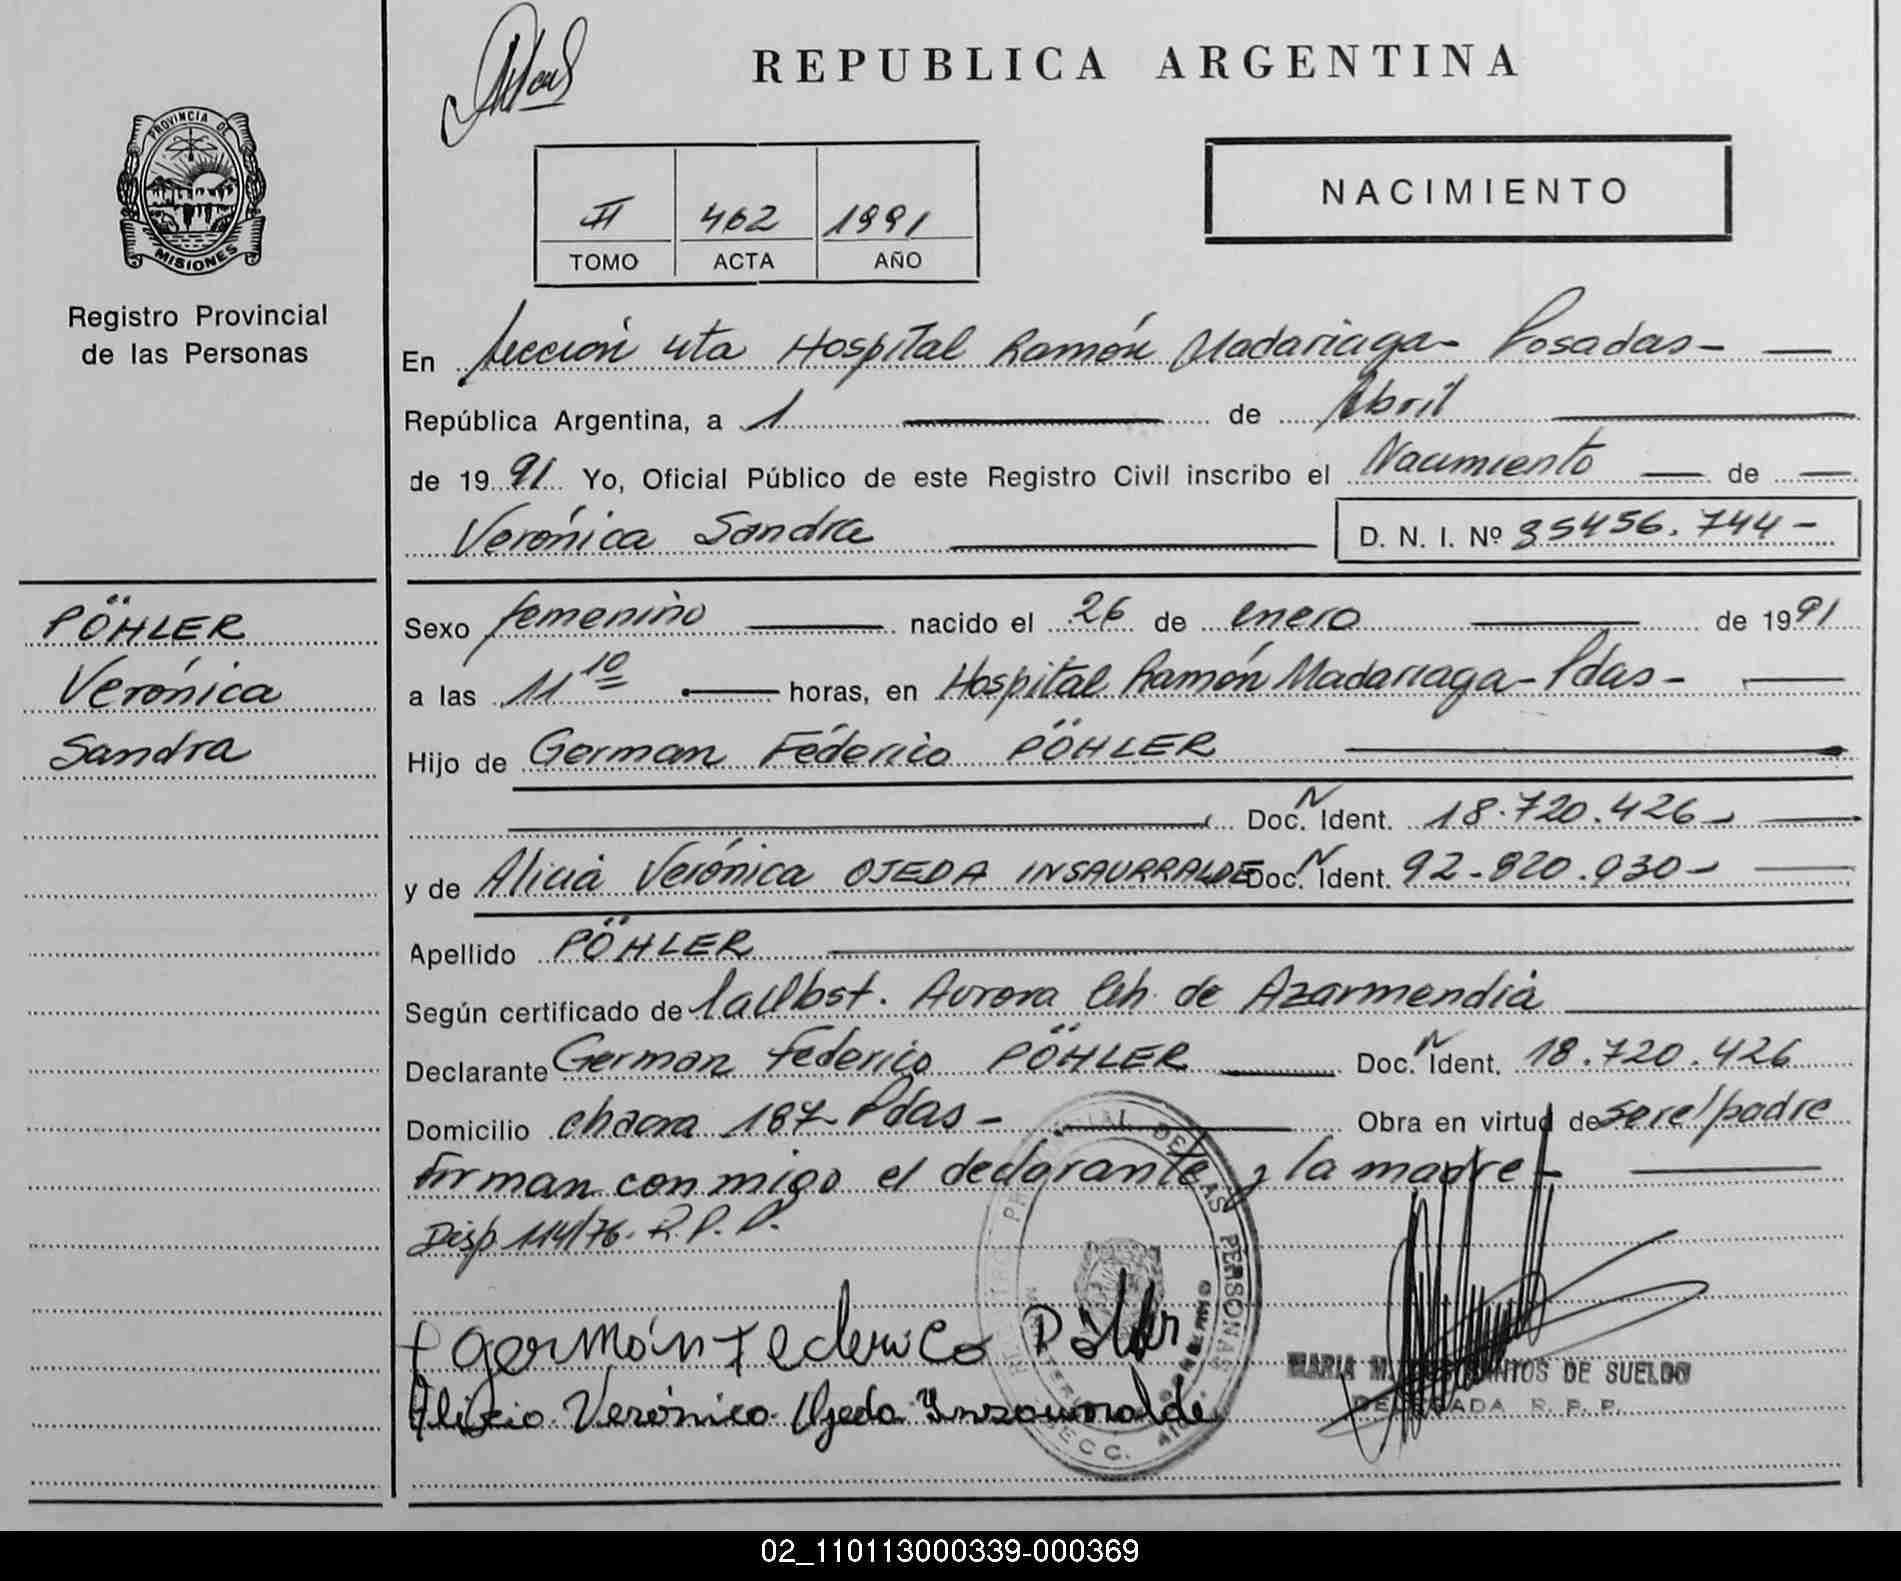 REPUBLICA ARGENTINA
PROVINCIA DE
MISIONES
Registro Provincial
de las Personas
II 462 1991
TOMO ACTA AÑO
NACIMIENTO
En Sección 4ta Hospital Ramón Madariaga - Posadas -
República Argentina, a 1 de Abril
de 1991 Yo, Oficial Público de este Registro Civil inscribo el Nacimiento de
Verónica Sandra D. N. I. Nº 35456.744 -
PÖHLER
Verónica
Sandra
Sexo femenino nacido el 26 de enero de 1991
a las 11 10 horas, en Hospital Ramón Madariaga - Pdas -
Hijo de German Féderico PÖHLER
Doc. N Ident. 18.720.426 -
y de Alicia Verónica OJEDA INSAURRALDE Doc. N Ident. 92.820.930 -
Apellido PÖHLER
Según certificado de la Obst. Aurora Ch. de Azarmendia
Declarante German Federico PÖHLER Doc. N Ident. 18.720.426
Domicilio chacra 187 Pdas - Obra en virtud de ser el padre
Firman conmigo el declarante y la madre -
Disp 114/76. R.P.P.
Germán Federico Pöhler
Alicia Verónica Ojeda Insaurralde
PROVINCIAL DE LAS PERSONAS
SECC.
MARIA DE SUELDO
DELEGADA R. P. P.
02_110113000339-000369